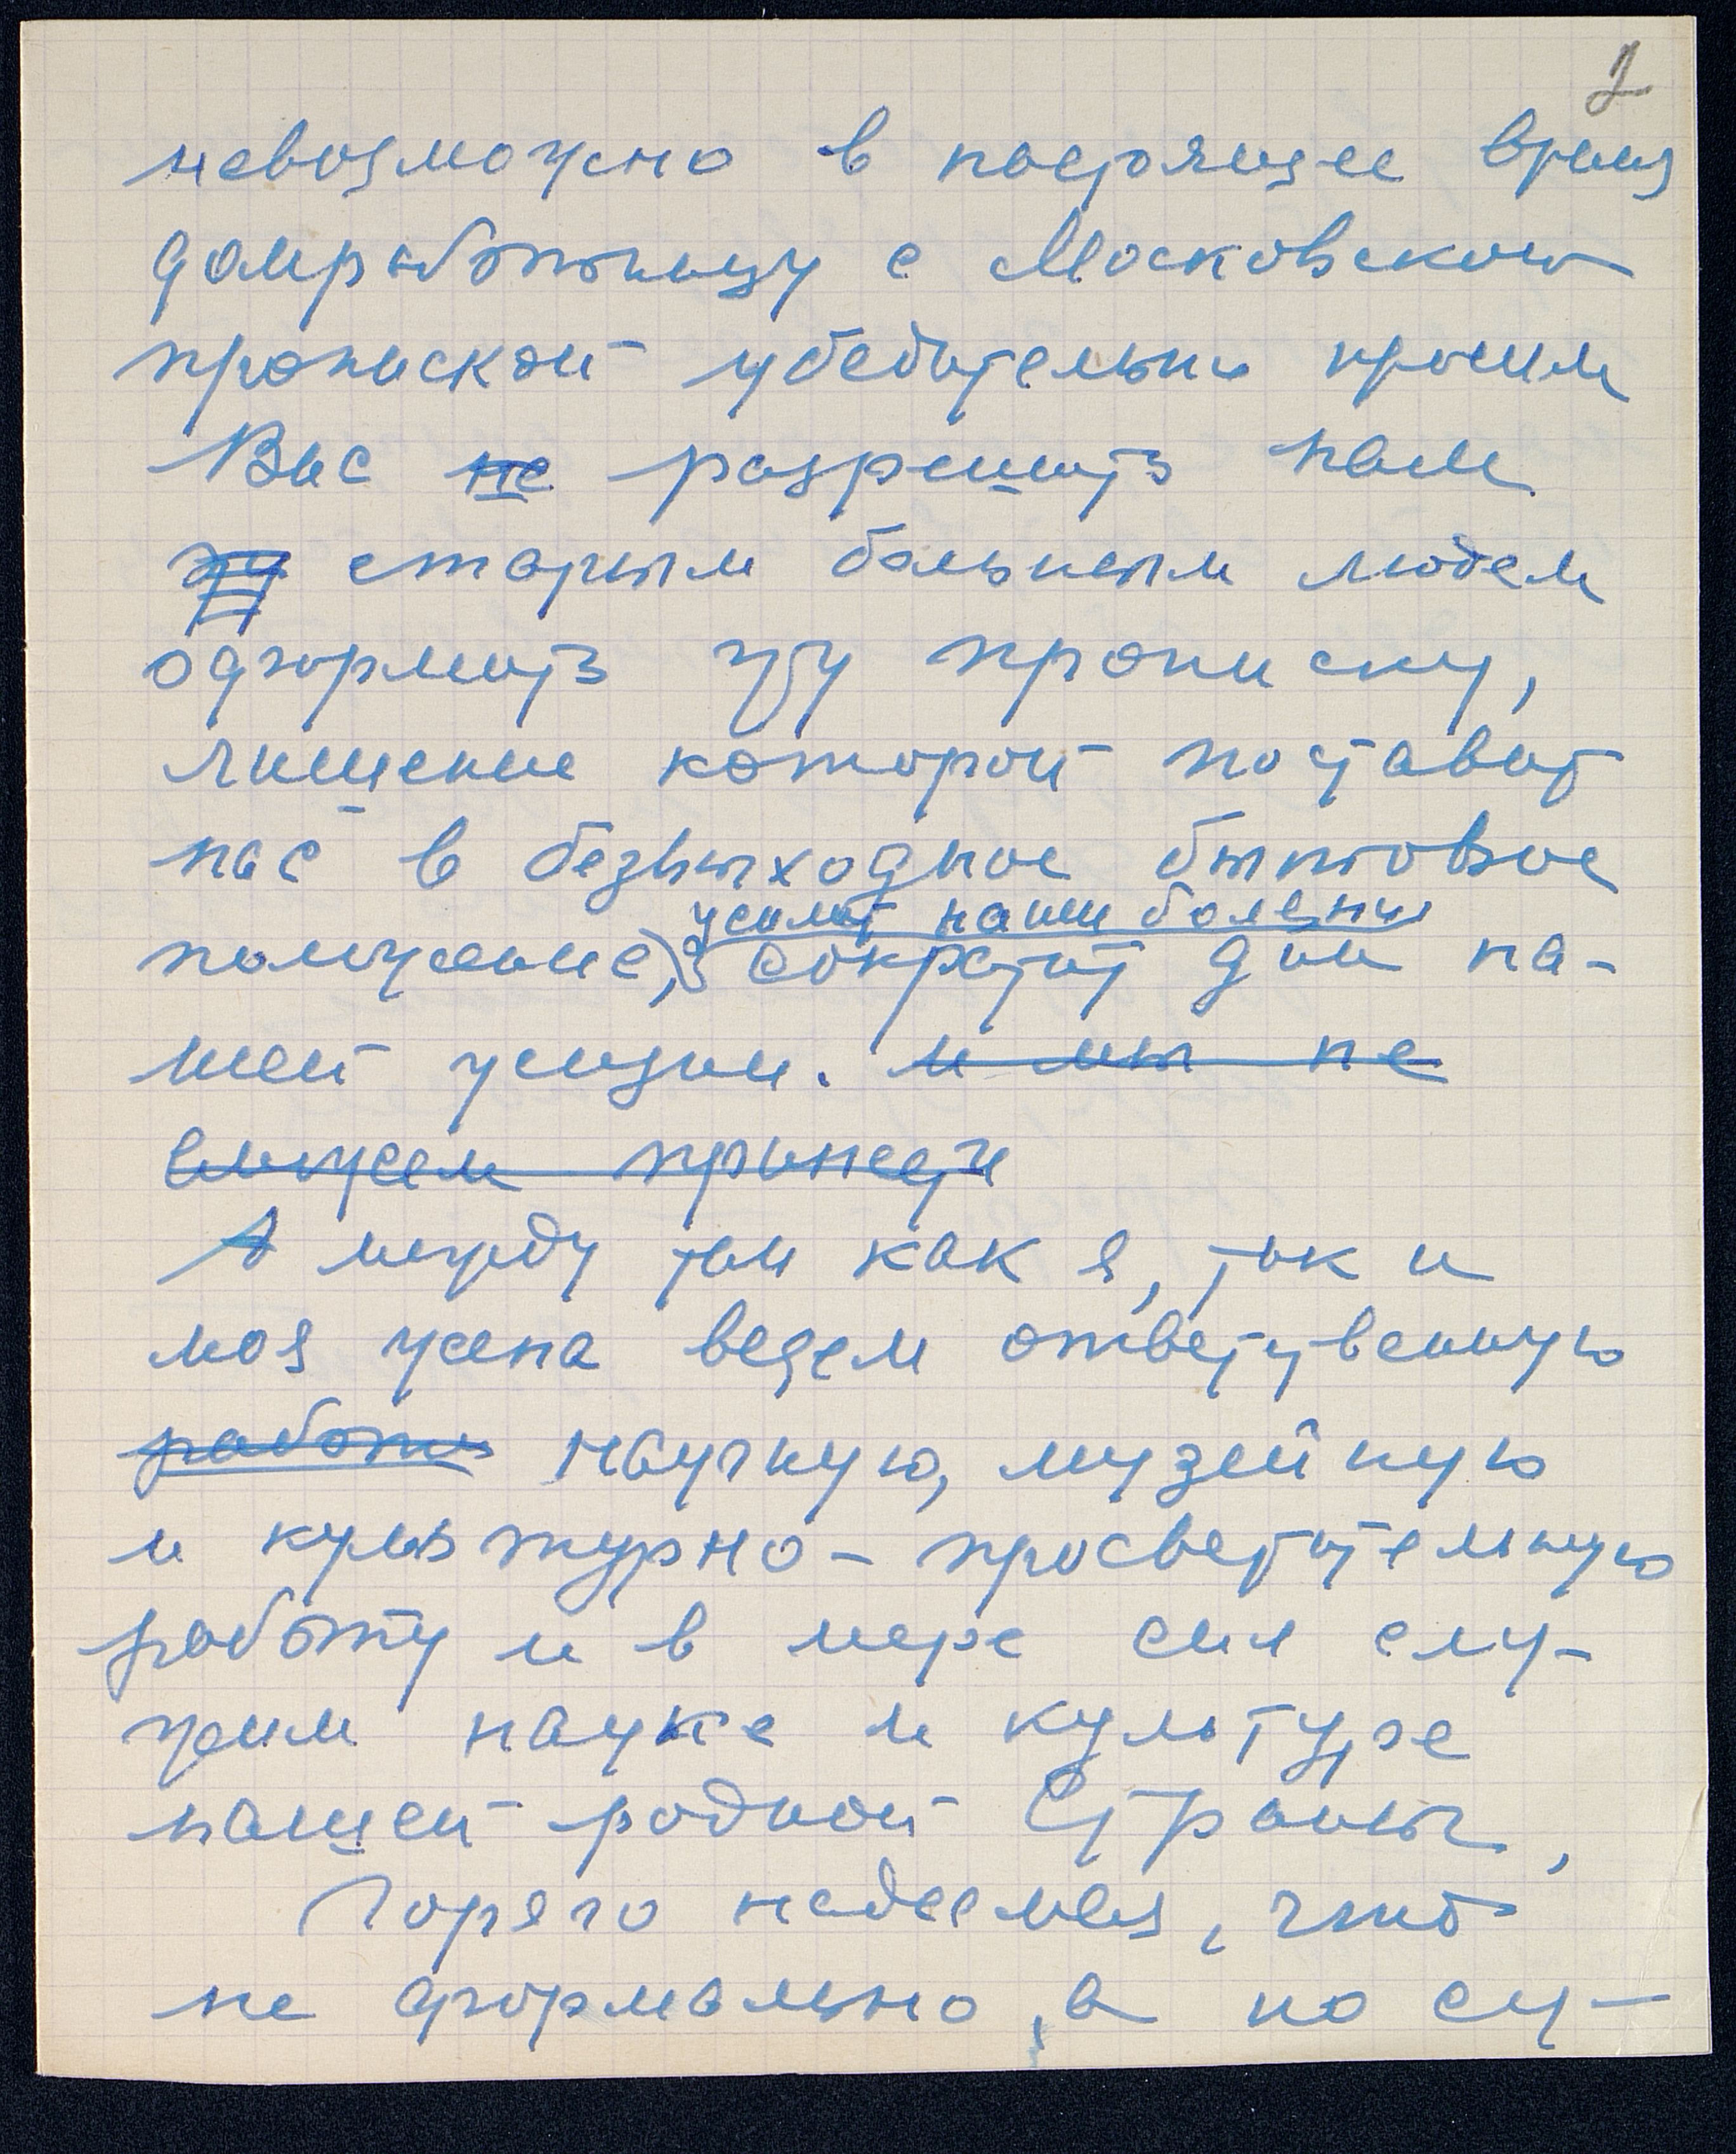 2
невозможно в настоящее время
домработницу с Московскою
пропиской убедительно просим
Вас не разрешить нам
старым больным людем
оформить эту прописку,
лишение которой поставит
нас в безвыходное бытовое
усилит наши болезни
положение, сократит дни на-
шей жизни. и мы не
сможем принести
А между тем как я, так и
моя жена ведем ответственную
работу научную, музейную
и культурно-просветительную
работу и в мере сил слу-
жим науке и культуре
нашей родной Страны,
Горячо надеемся, что
не формально, а по су-